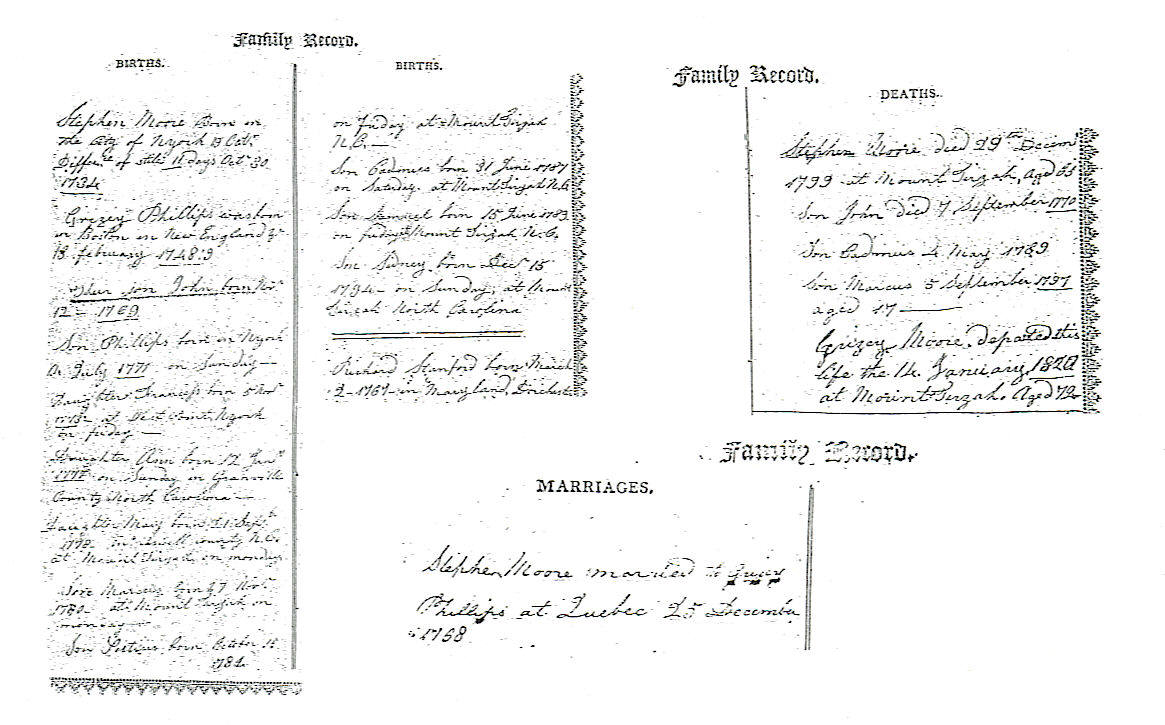 Family Record.
BIRTHS.
Stephen Moore born in
the City of NYork 19 Octr.
Difference of stile 11 days Octr. 30
1734
Grizey Phillips was born
in Boston in New England
13 february 1748:9
Their son John born Novr.
12 1769
Son Phillips born in NYork
July 1771 on Sunday
Daughter Frances born 5 Novr.
at County NYork
on friday
Daughter Ann born 12 Jany.
on Sunday in Granville
County North Carolina
Daughter Mary born 21 Sept.
1778 in County N.C.
at Mount Tirzah on monday
Sone Marcus born 27 Novr.
1780 at Mount Tirzah on
monday
Son born October 15
1784
BIRTHS.
on friday at Mount Tirzah
N.C.
Son Cadmus born 31 June 1787
on Saturday at Mount Tirzah N.C.
Son Samuel born 15 June 1789
on friday Mount Tirzah N.C.
Son Sidney born Decr. 15
1794 on Sunday, at Mount
Tirzah North Carolina
Richard Stanford born March
2 1767 in Maryland, Dorchest
Family Record.
DEATHS.
Stephen Moore died 29th Decemr
1799 at Mount Tirzah, Aged 65
Son John died 7 September 1770
Son Cadmus 2 May 1789
Son Marcus 5 September 1797
aged 17
Grizey Moore departed this
life the 14 January 1820
at Mount Tirzah. Aged 72
Family Record.
MARRIAGES.
Stephen Moore married to Grizey
Phillips at Quebec 25 December
1768